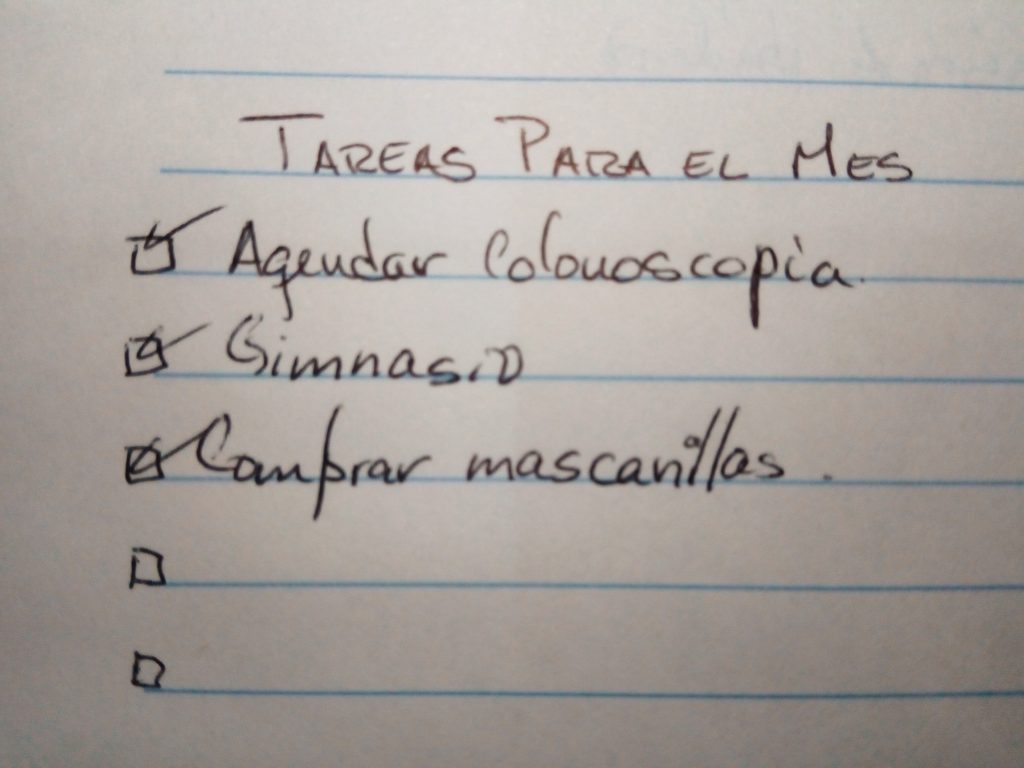 TAREAS PARA EL MES
☑ Agendar Colonoscopia.
☑ Gimnasio
☑ Comprar mascarillas.
☐
☐